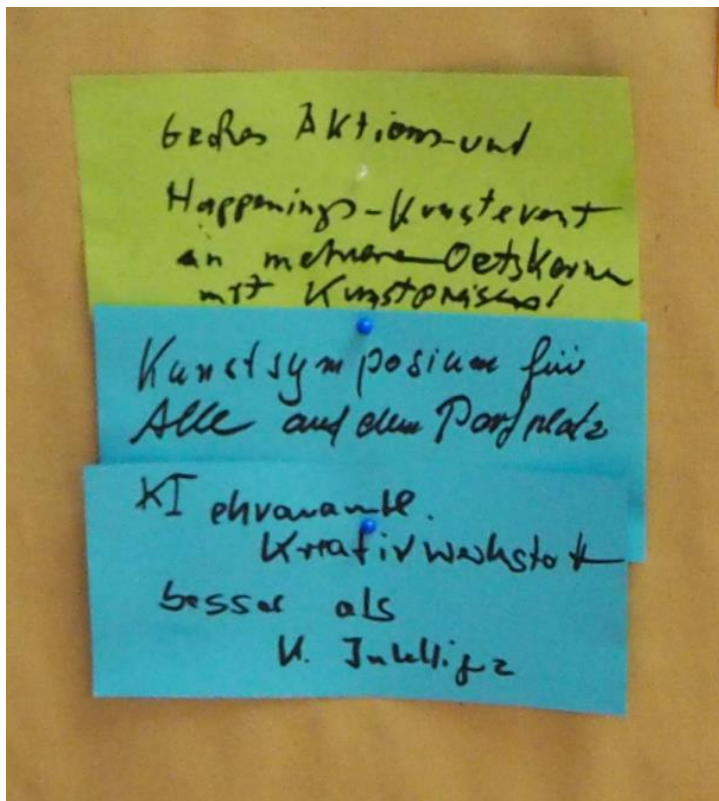 Großes Aktions- und
Happenings-Kunstevent
an mehrere Ortskerne
mit Kunstpreisen!
Kunstsymposium für
Alle auf dem Dorfplatz
KI ehrenamtl.
Kreativwerkstatt
besser als
K. Intelligenz